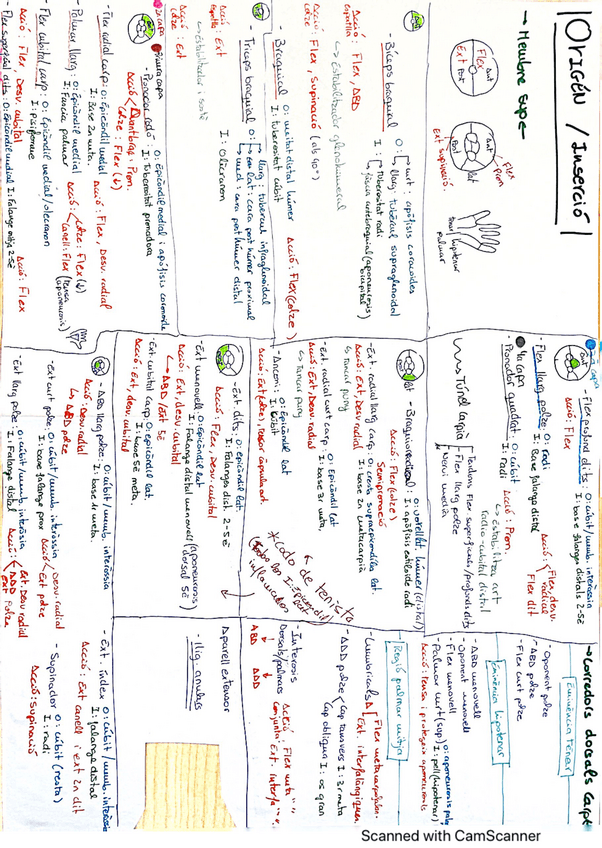 ORIGEN / Inserció
→ Membre supe-
Flex
ant
Ext
post
ant
Flex
Pron
lat
Post
Ext supinació.
tenar
hipotenar
palmar
ant
- Bíceps braquial O:
curt: apófisis coracoides
llarg: tubércul supraglenoidal
I:
tuberositat radi
Acció: Flex, supinació (als 90°)
Acció: Flex, ABD
espatlla
→ Establilitzador glenohumeral
- Braquial O: meitat distal húmer
I: tuberositat cúbit
Acció: Flex (colze)
- Tríceps braquial O:
llarg: tubércul infraglenoidal
cap lat: cara post húmer proximal
med: cara post húmer distal
I: Olicranon
Acció: Ext
espatlla
Acció: Ext
colze
1a capa
- Pronador rodó: O: epicóndil medial i apófisis coronoide
I: tuberositat pronadora
Acció
Avantbraç: Pron.
Colze: Flex (↓)
- Flex radial carp: O: Epicóndil medial
I: Base 2n meta.
Acció: Flex, Desv. radial
- Palmar llarg: O: Epicóndil medial
I: Fascia palmar
Acció:
colze: Flex (↓)
canell: Flex (tensa aponeurosis)
- Flex cubital carp: O: Epicóndil medial/olecranon
I: Pisiforme
Acció: Flex, Desv. cubital
- Flex superficial dits: O: Epicóndil medial I: Falange mitja 2-5è
Acció: Flex
- Flex profund dits: O: cúbit/memb. interòssia
I: base falange distals 2-5è
Acció: Flex
- Flex llarg polze: O: radi
I: Base falange distal
Acció: Flex/desv. radial
Flex dit
4a capa
- Pronador quadrat: O: cúbit
I: radi
Acció: Pron.
→ Estabilitza art radio-cubital distal
Túnel carpià
Tendons flex superficials/profunds dits
Flex llarg polze
Nervi medià
lat
- Braquioradial: O: vorell lat. húmer (distal)
I: apófisis estiloide radi
Acció: Flex (colze)
Semipronació
- Ext. radial llarg carp: O: cresta supraepicondílea lat.
I: base 2n metacarpià
Acció: Ext, Desv. radial
↳ Tancar puny
- Ext. radial curt carp: O: Epicóndil lat
I: base 3r meta.
Acció: Ext, Desv. radial
↳ Tancar puny
- Anconi: O: Epicóndil lat
I: Cúbit
Acció: Ext (colze), tensor capsula art.
- Ext dits: O: epicóndil lat
I: Falange dist. 2-5è
- Ext menovell: O: epicóndil lat
I: Falange distal menovell (aponeurosis dorsal 5è)
Acció: Ext, desv. cubital
↳ ABD/ext 5è
- Ext. cubital carp O: epicóndil lat.
I: base 5è meta.
Acció: Ext, desv. cubital
* codo de tenista
- ABD llarg polze: O: cúbit/memb. interòssia
I: base 1r meta
Acció: Desv. radial
↳ ABD polze
- Ext curt polze: O: cúbit/memb. interòssia
I: base falange prox
Acció
Desv. radial
Ext polze
- Ext llarg polze: O: cúbit/memb. interòssia
I: Falange distal
Acció:
Ext. Desv radial
→ Corredors dorsals Carp
Eminència tenar
- Oponent polze
- ABD polze
- Flex curt polze
Eminència hipotenar
- ABD menovell
- Oponent menovell
- Flex menovell
- Palmar curt (sup)
I: pell (hipotenar)
Acció: tensa i protegeix aponeurosis
Regió palmar mitja
- Lumbricals
Flex metacarpofalan.
Ext. interfalàngiques
- ADD polze
Cap transvers I: 3r meta
Cap obliqua I: os gran
- Interossis
Dorsals/palmars
ABD
ADD
Aparell extensor
- Llig. anulars
- Ext. índex O: cúbit/memb. interòssia
I: falange distal
Acció: Ext canell i ext 2n dit
- Supinador O: cúbit (cresta)
I: radi
Acció: supinació
Scanned with CamScanner